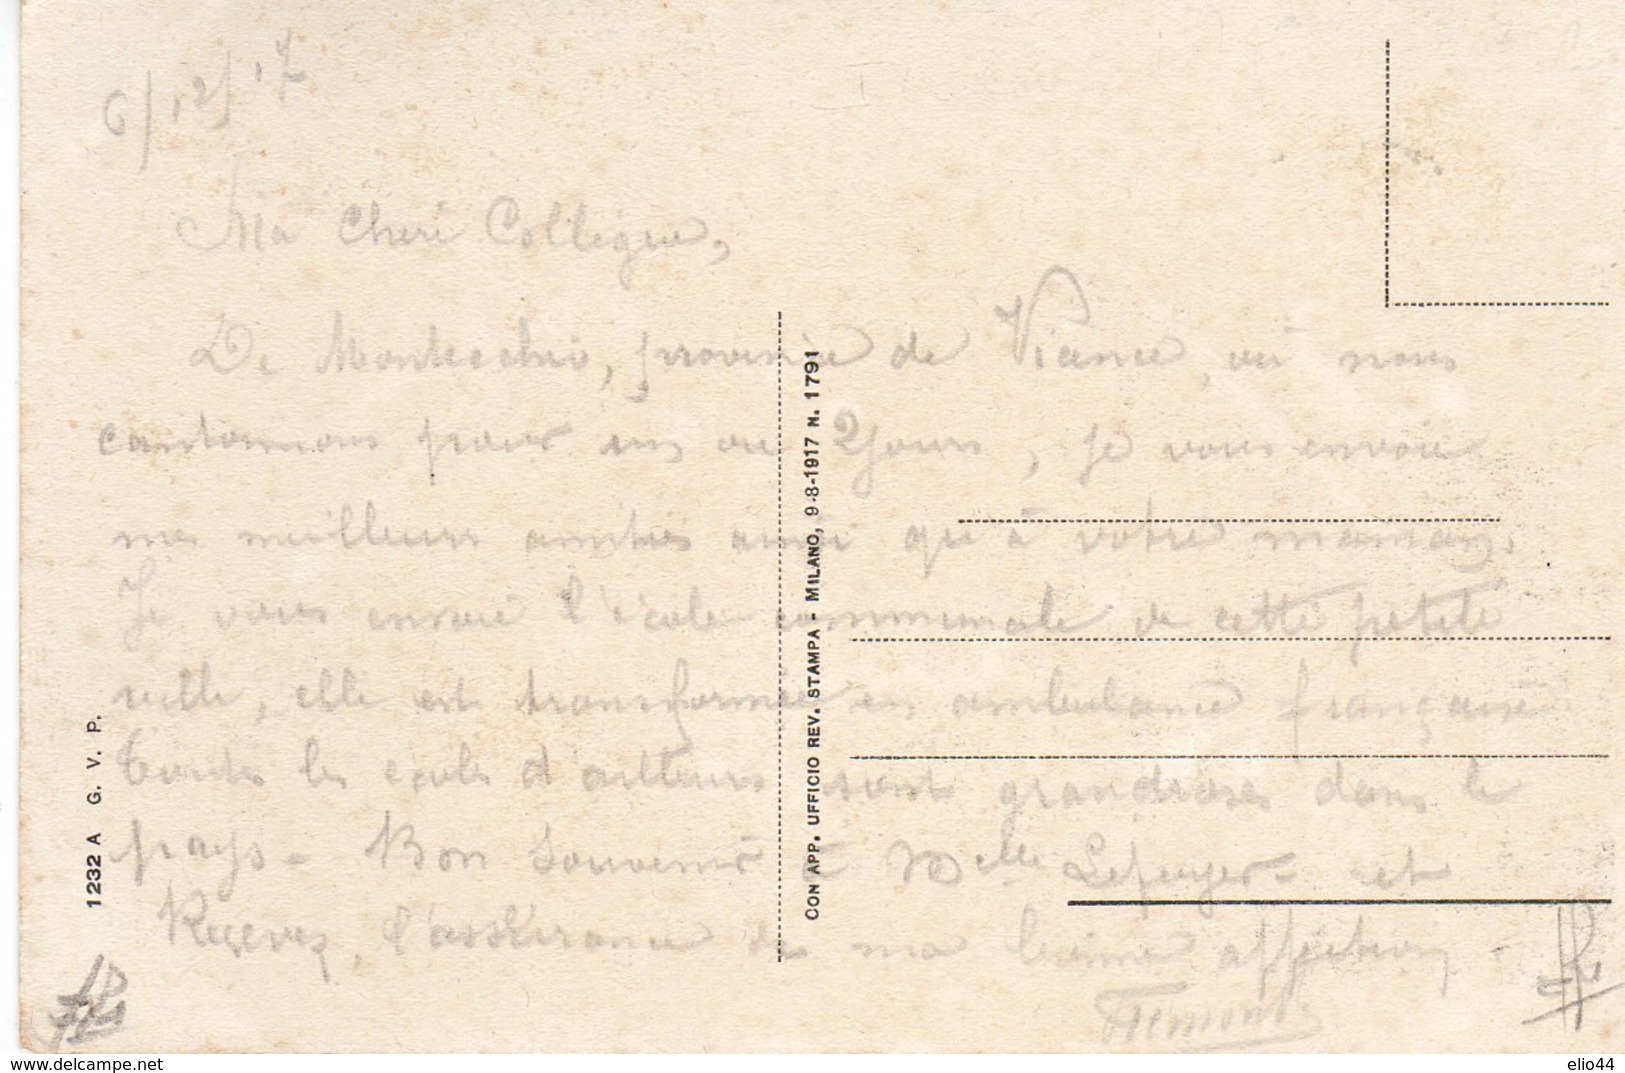 6/12/17
Ma Cheri Collègue,
De Montecchio, province de Vicence, où nous
cantonnons pour un ou 2 jours, je vous envoie
mes meilleurs amitiés ainsi qu'à votre maman.
Je vous envoie l'école communale de cette petite
ville, elle est transformée en ambulance française
Toutes les écoles d'ailleurs sont grandioses dans le
pays - Bon Souvenir à Melle et
Recevez, l'assurance de ma bonne affection -
1232 A G. V. P.
CON APP. UFFICIO REV. STAMPA - MILANO, 9-8-1917 N. 1791
elio44